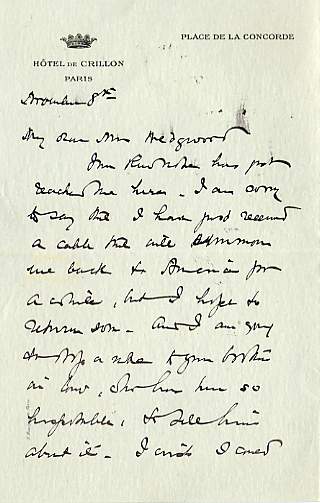 HÔTEL DE CRILLON
PARIS
PLACE DE LA CONCORDE
November 8th
My dear Mrs Wedgwood
Your kind note has just
reached me here - I am sorry
to say that I have just received
a cable that will summon
me back to America for
a while, but I hope to
return soon - And I am going
to drop a note to your brother
in law, who has been so
hospitable, to tell him
about it - I wish I could